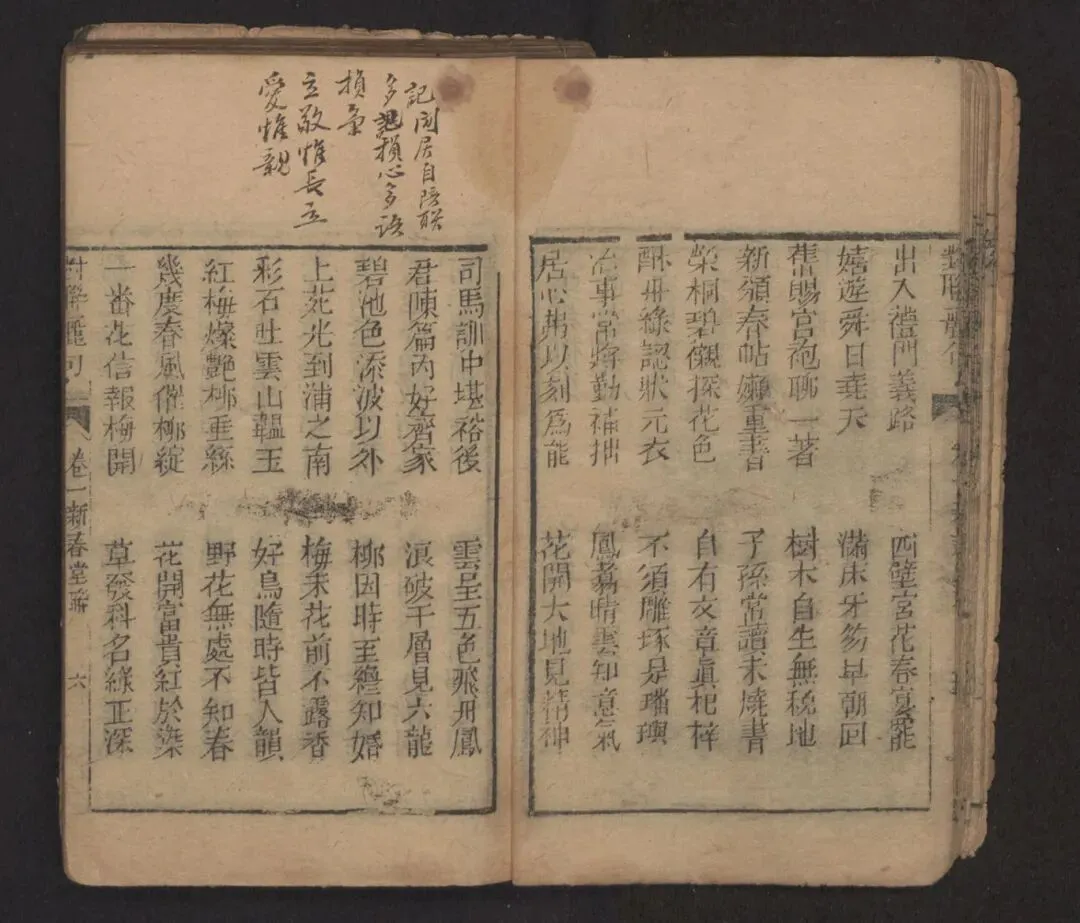 對聯麗句
出入禮門義路
四壁宮花春宴罷
嬉遊舜日堯天
滿床牙笏早朝回
舊賜宮袍聊一著
樹木自生無稅地
新頒春帖嬾重書
子孫常讀未燒書
榮桐碧襯探花色
自有文章眞杞梓
綠認狀元衣
不須雕琢是璠璵
治事常將勤補拙
鳳翥晴雲知意氣
居心弗以刻爲能
花開大地見精神
記同居自聯
多記損心多語
損氣
立敬惟長立
愛惟親
司馬訓中堪裕後
雲呈五色飛丹鳳
君陳篇內好齊家
浪破千層見六龍
碧池色添波以外
柳因時至纔知婚
上苑光到浦之南
梅未花前不露香
彩石吐雲山韞玉
好鳥隨時皆人韻
紅梅燦艷柳垂絲
野花無處不知春
幾度春風催柳綻
花開富貴紅於染
一番花信報梅開
草發科名綠正深
對聯麗句 卷一新春堂聯 六